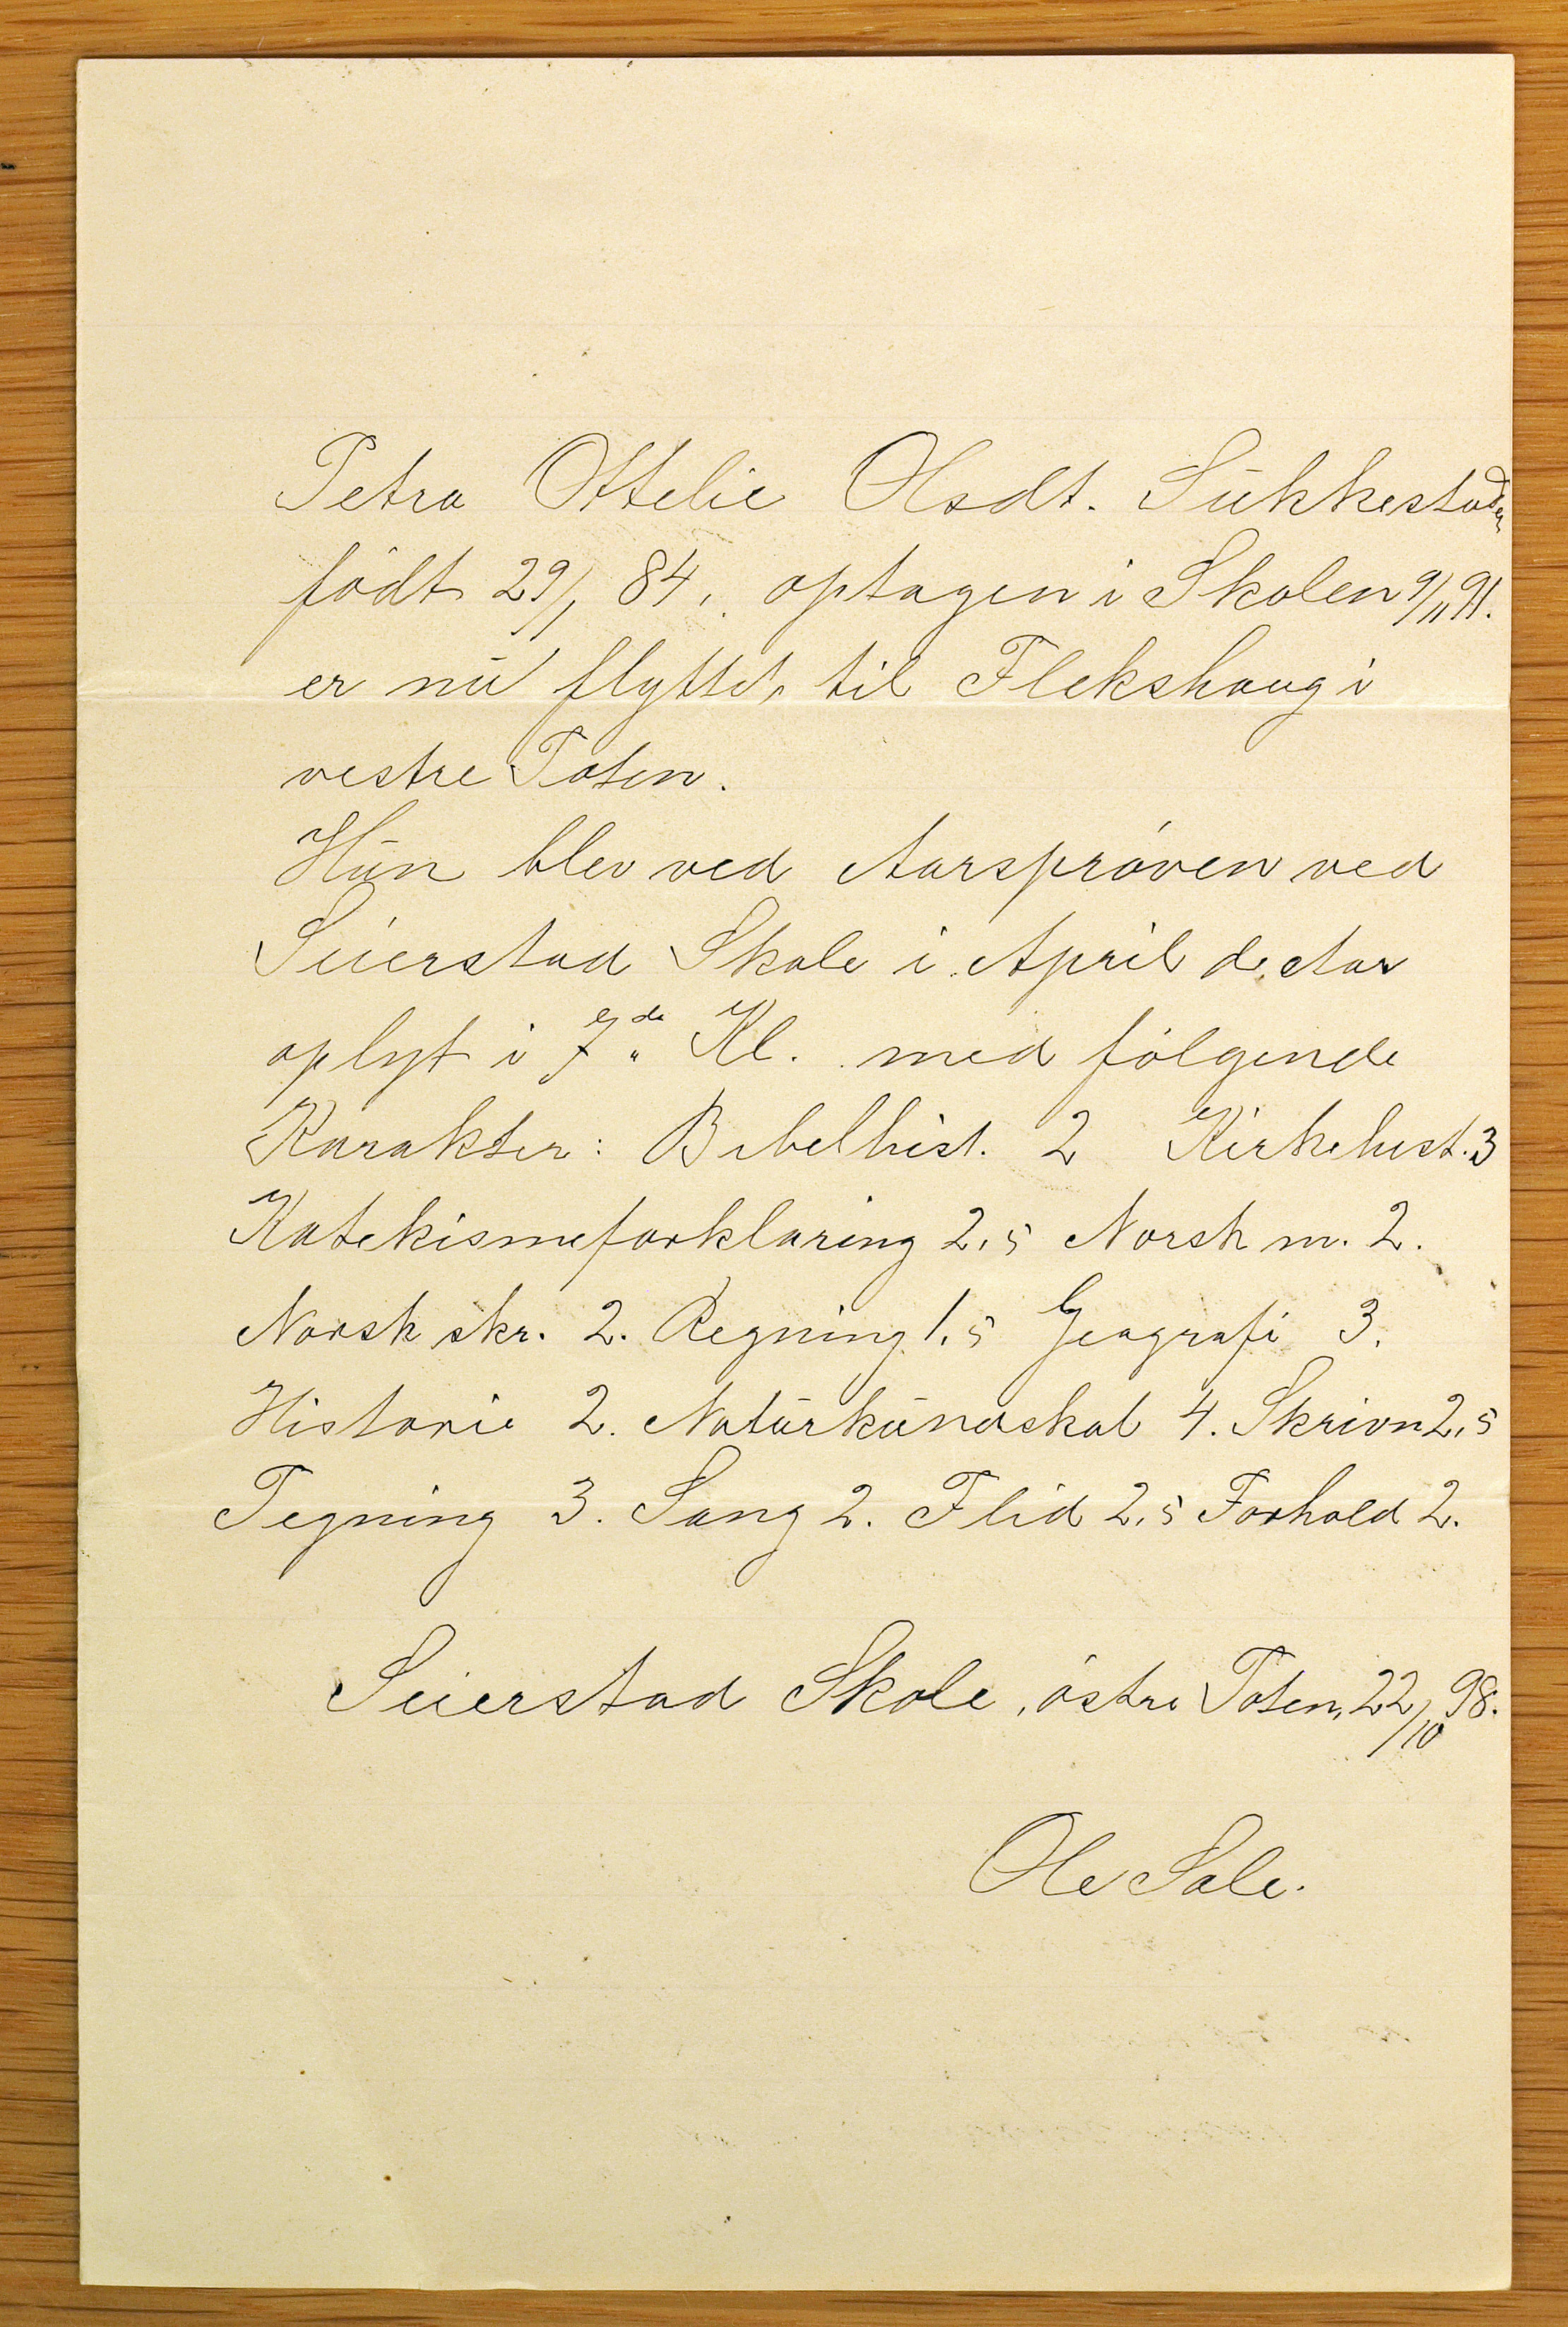 Petra Ottelie Olsdt. Sukkestaden
födt 29/1 84, optagen i Skolen 9/11 91.
er nu flyttet til Flekshaug i
vestre Toten.
Hun blev ved Aarspröven ved
Seierstad Skole i April d. Aar
oplyt i 7de Kl. med fölgende
Karakter: Bibelhist. 2 Kirkehist. 3
Katekismeforklaring 2,5 Norsk m. 2.
Norsk skr. 2. Regning 1,5 Geografi 3.
Historie 2. Naturkundskab 4. Skrivn 2,5
Tegning 3. Sang 2. Flid 2,5 Forhold 2.
Seierstad Skole, östre Toten, 22/10 98.
Ole Sole.